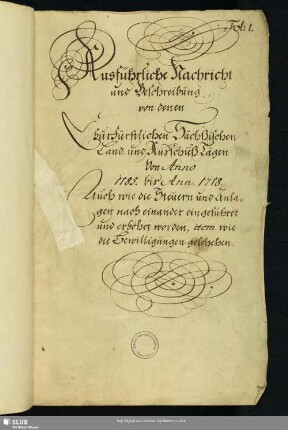 Fol: 1.
Ausführliche Nachricht
und Beschreibung
von denen
Churfürstlichen Sächsischen
Land und Ausschuß Tagen
Von Anno
1185. bis Ann. 1718.
Auch wie die Steuern und Anla-
gen nach einander eingeführet
und erhöhet worden, item wie
die Bewilligungen geschehen.
SLUB